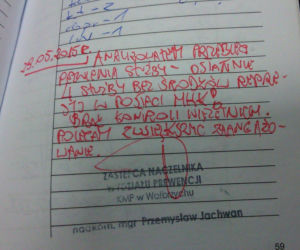 kt - 2
- 1
- 1
ANALIZOWAŁEM PRZEBIEG
PEŁNIENIA SŁUŻBY - OSTATNIE
4 SŁUŻBY BEZ ŚRODKÓW REPRE-
SJI W POSTACI MKK.
BRAK KONTROLI
POLECAM ZWIĘKSZYĆ ZAANGAŻO-
WANIE.
ZASTĘPCA NACZELNIKA
WYDZIAŁU PREWENCJI
KMP w Wałbrzychu
nadkom. mgr Przemysław Jachwan
59